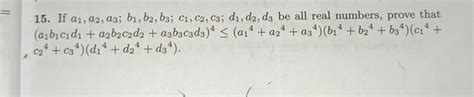 15. If a₁, a₂, a₃; b₁, b₂, b₃; c₁, c₂, c₃; d₁, d₂, d₃ be all real numbers, prove that
(a₁b₁c₁d₁ + a₂b₂c₂d₂ + a₃b₃c₃d₃)⁴ ≤ (a₁⁴ + a₂⁴ + a₃⁴)(b₁⁴ + b₂⁴ + b₃⁴)(c₁⁴ +
c₂⁴ + c₃⁴)(d₁⁴ + d₂⁴ + d₃⁴).